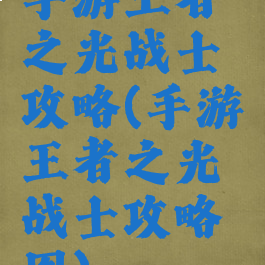 手游王者
之光战士
攻略(手游
王者之光
战士攻略
图)